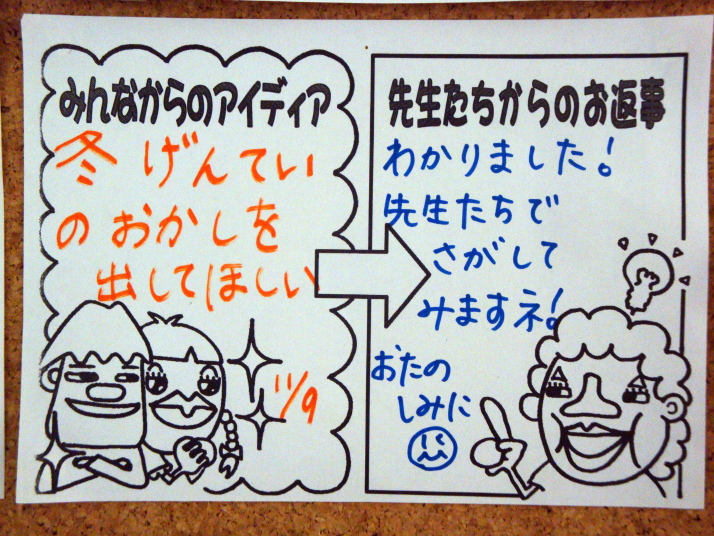 みんなからのアイディア
冬げんてい
のおかしを
出してほしい
11/9
先生たちからのお返事
わかりました!
先生たちで
さがして
みますネ!
おたの
しみに